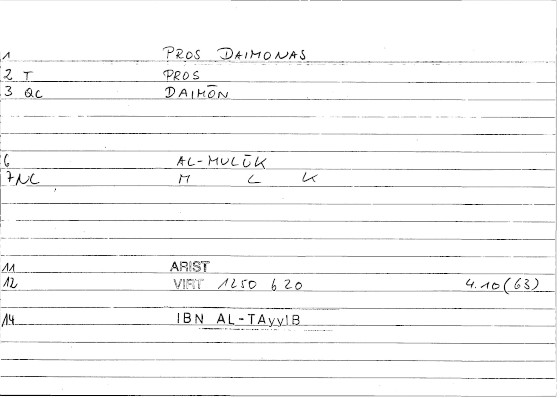 1 PROS DAIMONAS
2 T PROS
3 QC DAIMŌN
6 AL-MULŪK
7 NC M L K
11 ARIST
12 VIRT 1250 b 20 4.10(63)
14 IBN AL-TAyyIB